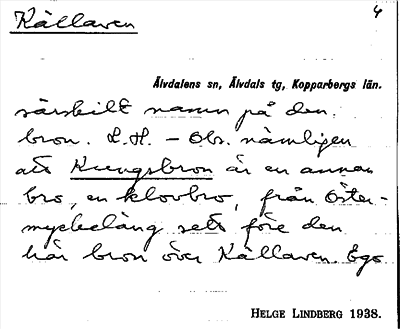 Källaven
4
Älvdalens sn, Älvdals tg, Kopparbergs län.
särskilt namn på den
bron. L.H. – Obs. nämligen
att Kungsbron är en annan
bro, en klovbro, från Öster-
myckeläng sett före den
här bron över Källaven. Ego
HELGE LINDBERG 1938.